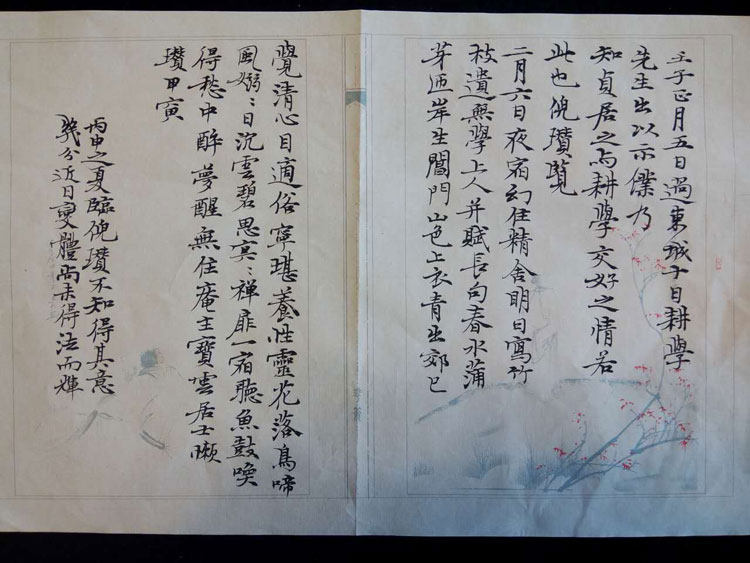 壬子正月五日過東城下日耕學
先生出以示僕乃
知貞居之与耕學交好之情若
此也倪瓚覽
二月六日夜宿幻住精舍明日寫竹
枝遺無學上人并賦長句春水蒲
芽匝岸生閶門山色上衣青出郊已
覺清心目適俗寧堪養性靈花落鳥啼
風嫋〻日沉雲碧思冥〻禅扉一宿聽魚鼓喚
得愁中醉夢醒無住庵主寶雲居士嬾
瓚甲寅
丙申之夏臨倪瓚不知得其意
幾分近日变體尚未得法而輝